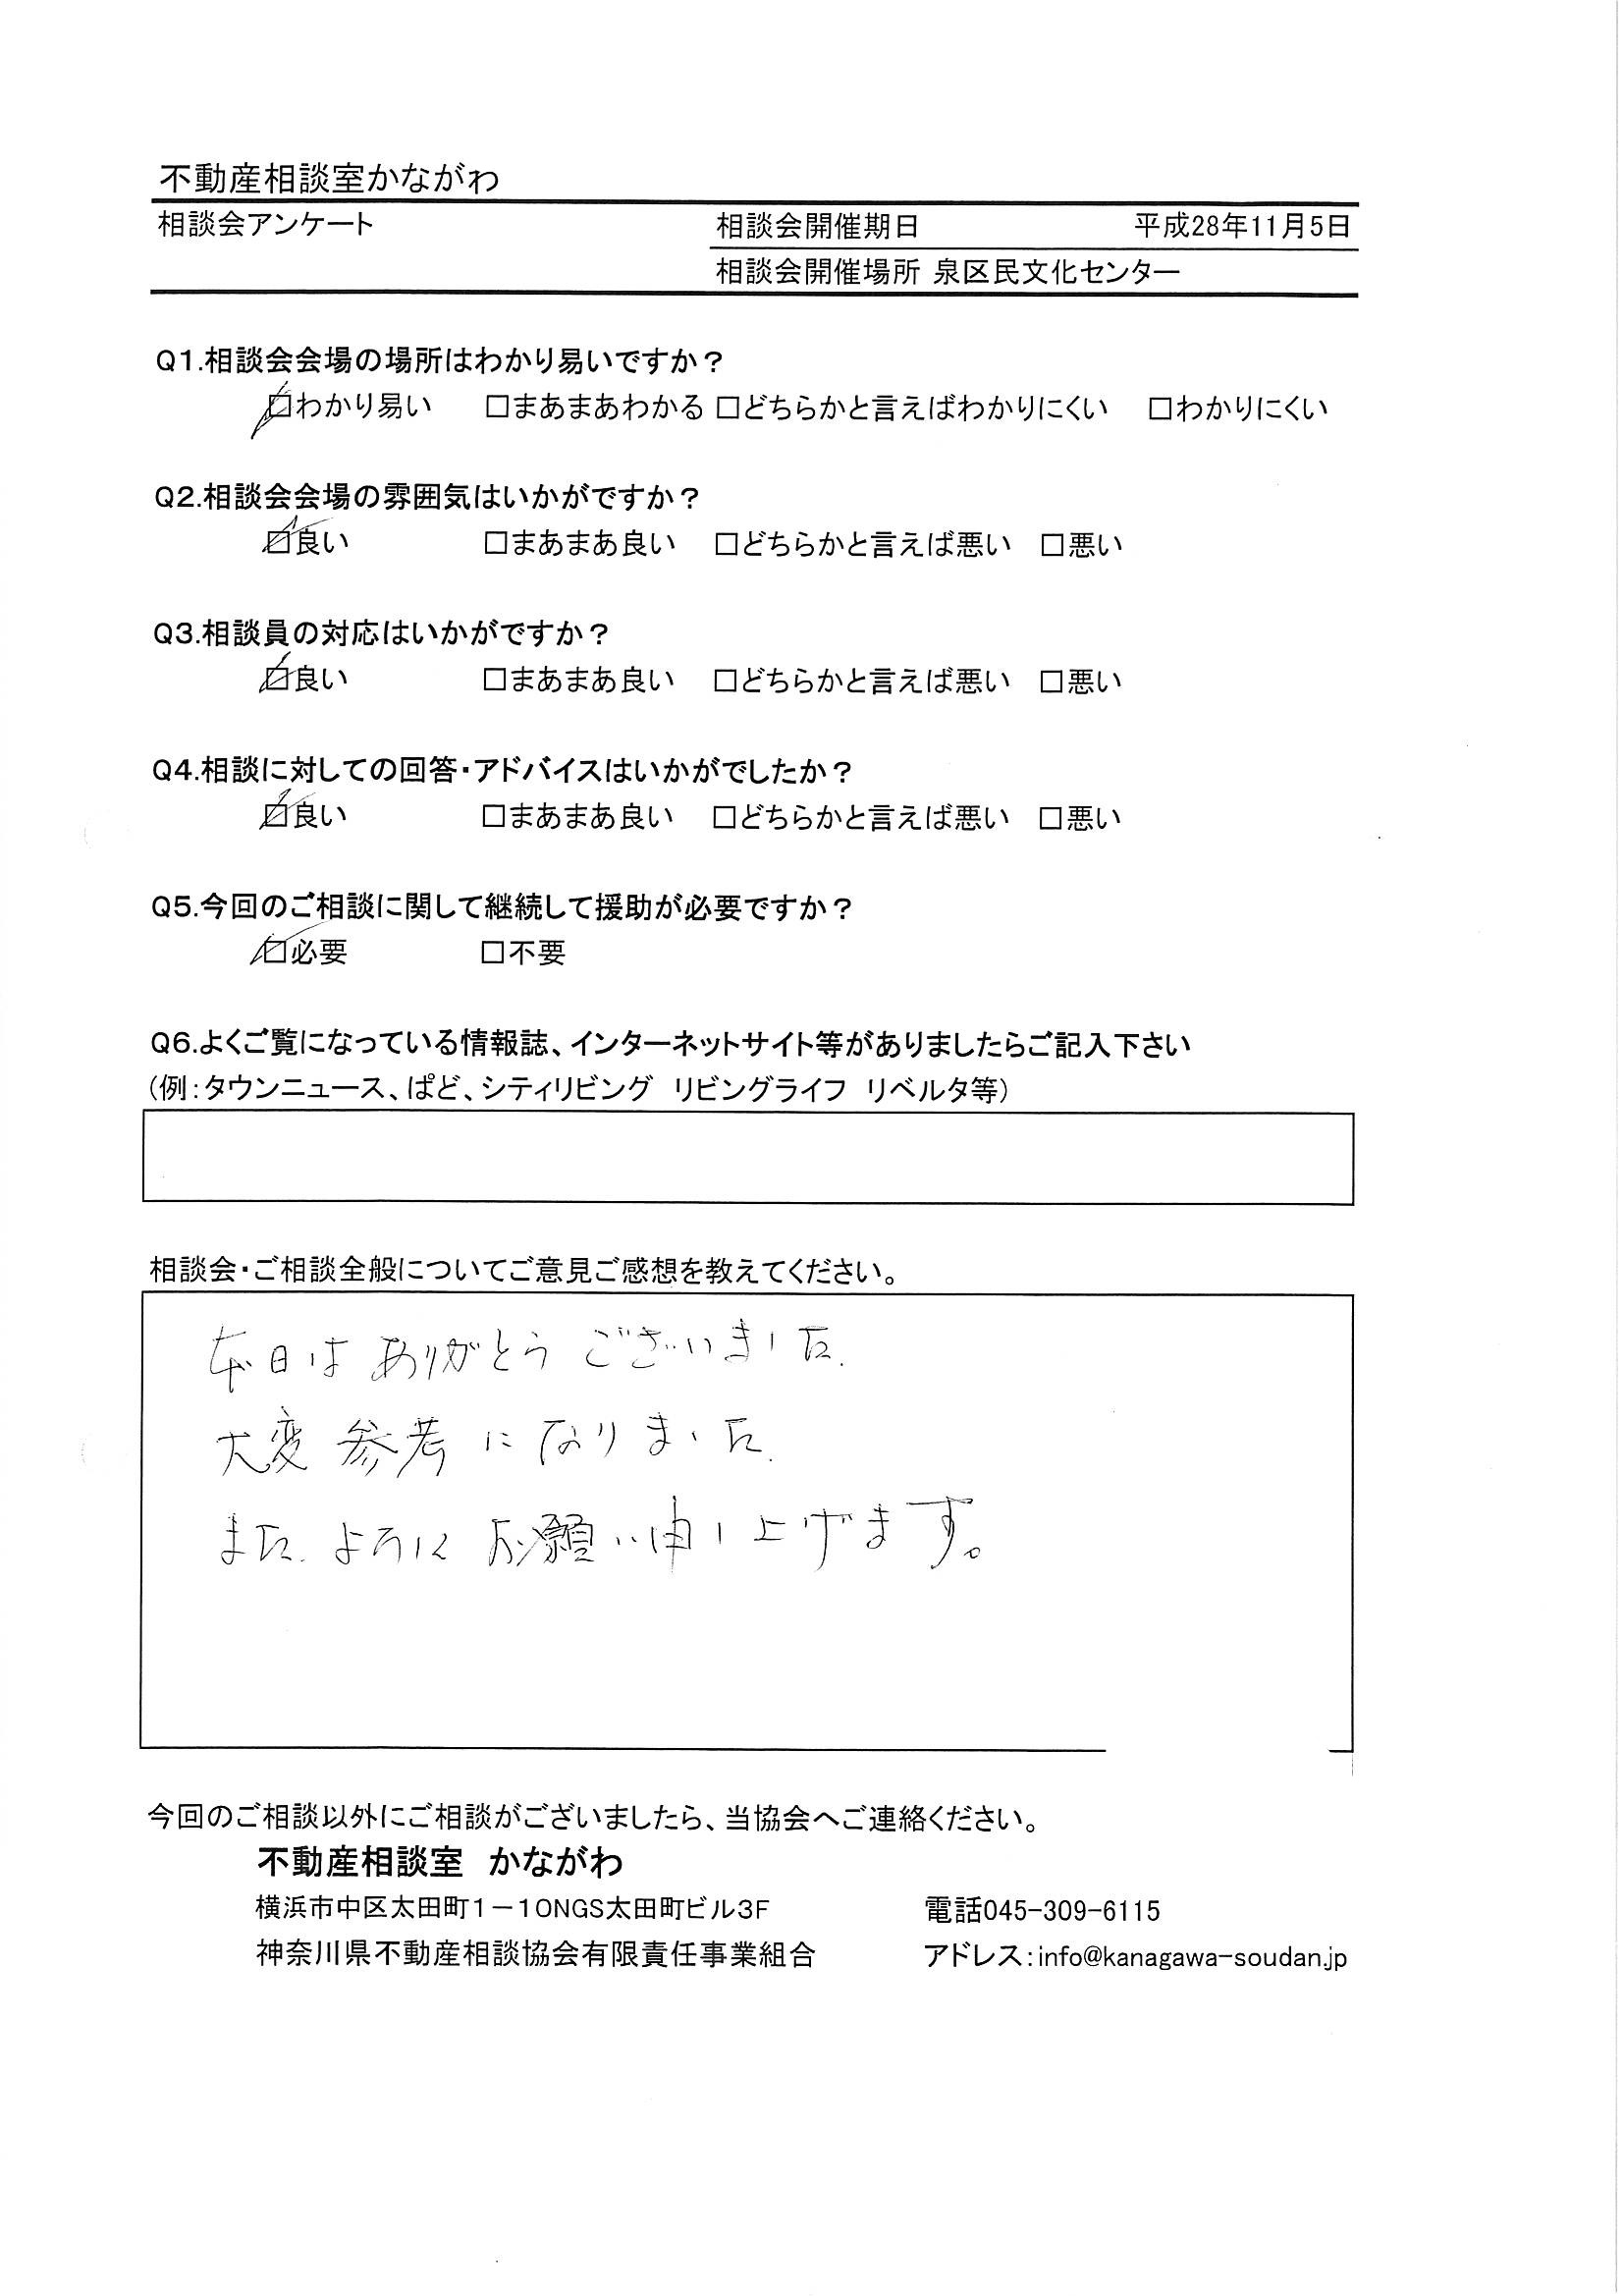 不動産相談室かながわ
相談会アンケート 相談会開催期日 平成28年11月5日
相談会開催場所 泉区民文化センター
Q1.相談会会場の場所はわかり易いですか？
☑わかり易い □まあまあわかる □どちらかと言えばわかりにくい □わかりにくい
Q2.相談会会場の雰囲気はいかがですか？
☑良い □まあまあ良い □どちらかと言えば悪い □悪い
Q3.相談員の対応はいかがですか？
☑良い □まあまあ良い □どちらかと言えば悪い □悪い
Q4.相談に対しての回答・アドバイスはいかがでしたか？
☑良い □まあまあ良い □どちらかと言えば悪い □悪い
Q5.今回のご相談に関して継続して援助が必要ですか？
☑必要 □不要
Q6.よくご覧になっている情報誌、インターネットサイト等がありましたらご記入下さい
（例：タウンニュース、ぱど、シティリビング リビングライフ リベルタ等）
相談会・ご相談全般についてご意見ご感想を教えてください。
本日はありがとうございました.
大変参考になりました.
また.よろしくお願い申し上げます。
今回のご相談以外にご相談がございましたら、当協会へご連絡ください。
不動産相談室 かながわ
横浜市中区太田町1－10NGS太田町ビル3F 電話045-309-6115
神奈川県不動産相談協会有限責任事業組合 アドレス：info@kanagawa-soudan.jp